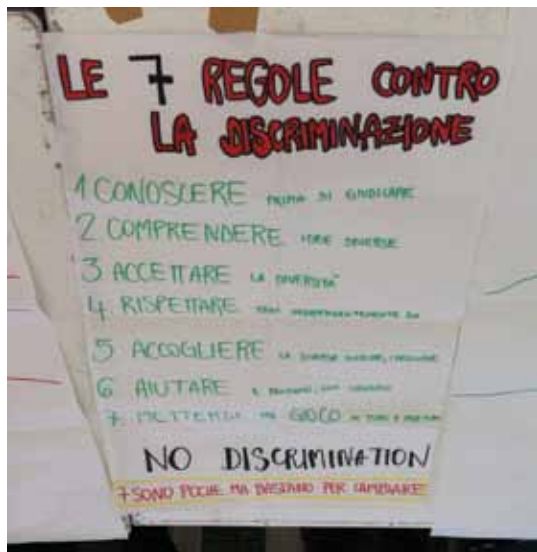 LE 7 REGOLE CONTRO
LA DISCRIMINAZIONE
1 CONOSCERE PRIMA DI GIUDICARE
2 COMPRENDERE IDEE DIVERSE
3 ACCETTARE LA DIVERSITÀ
4. RISPETTARE INDIPENDENTEMENTE DA
5 ACCOGLIERE LA
6 AIUTARE
7. METTERSI IN GIOCO
NO DISCRIMINATION
7 SONO POCHE MA BASTANO PER CAMBIARE